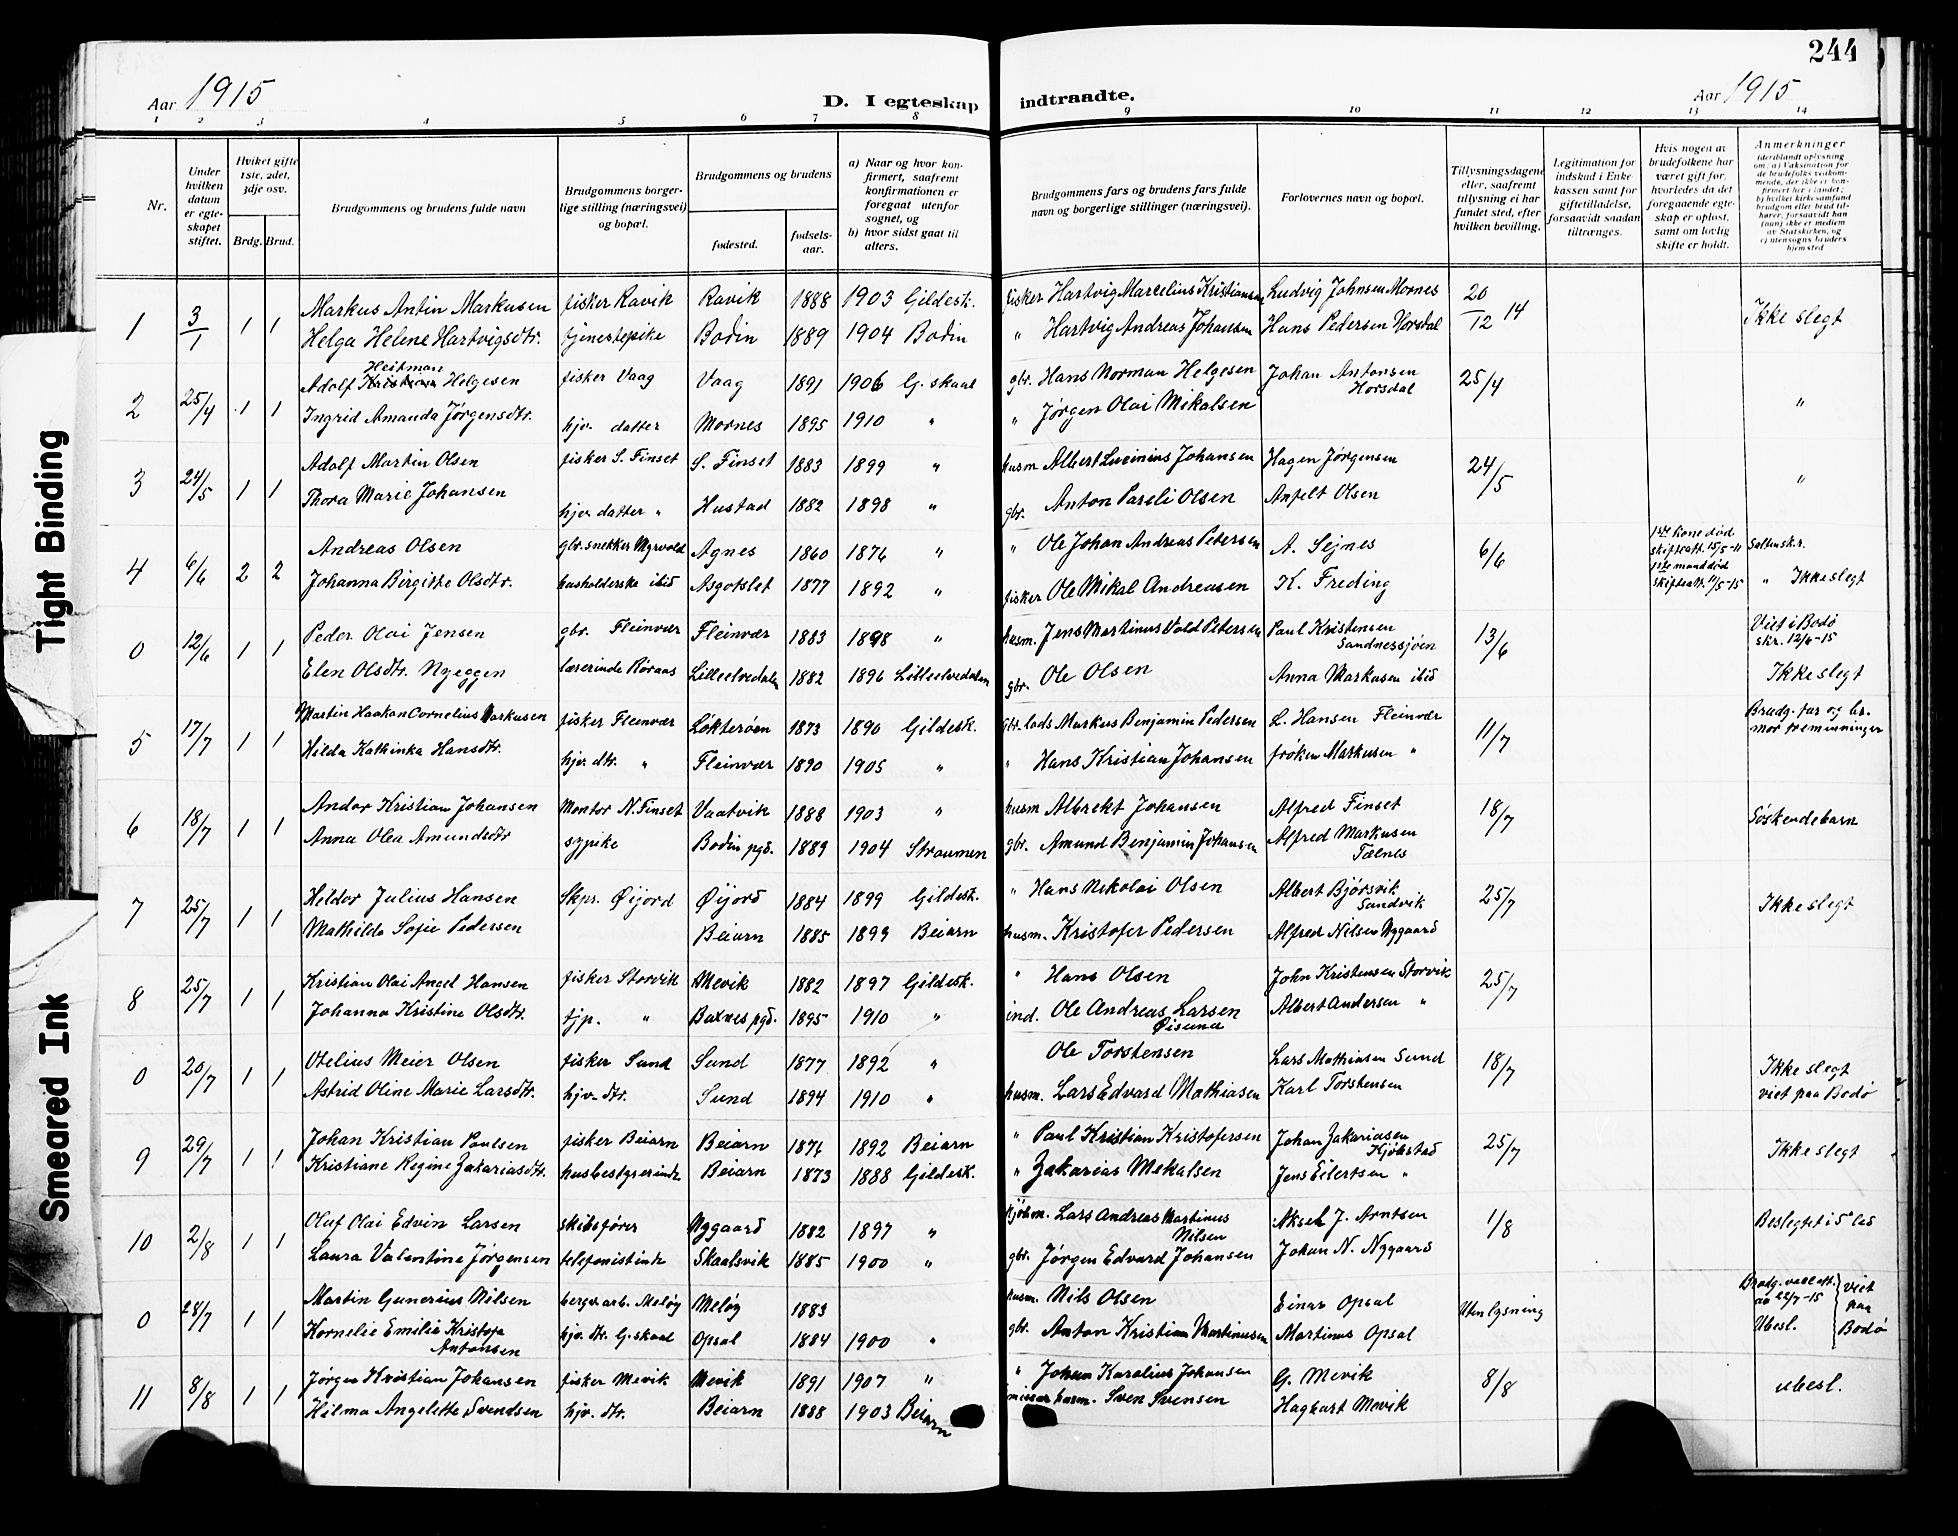 244
Aar 1915
D. I egteskap indtraadte.
Aar 1915
1 2 3 4 5 6 7 8 9 10 11 12 13 14
Nr.
Under hvilken datum er egteskapet stiftet.
Hvilket gifte 1ste, 2det, 3dje osv.
Brdg. Brud.
Brudgommens og brudens fulde navn
Brudgommens borgerlige stilling (næringsvei) og bopæl.
Brudgommens og brudens
fødested.
fødselsaar.
a) Naar og hvor konfirmert, saafremt konfirmationen er foregaat utenfor sognet, og
b) hvor sidst gaat til alters.
Brudgommens fars og brudens fars fulde navn og borgerlige stillinger (næringsvei).
Forlovernes navn og bopæl.
Tillysningsdagene eller, saafremt tillysning ei har fundet sted, efter hvilken bevilling.
Legitimation for indskud i Enkekassen samt for giftetilladelse, forsaavidt saadan tiltrænges.
Hvis nogen av brudefolkene har været gift før, hvorledes da det foregaaende egteskap er opløst, samt om lovlig skifte er holdt.
Anmerkninger (deriblandt oplysning om: a) Vaksination for de brudefolks vedkommende, der ikke er konfirmert her i landet; b) hvilket kirkesamfund brudgom eller brud tilhører, forsaavidt han (hun) ikke er medlem av Statskirken, og c) utensogns bruders hjemsted
1 3/1 1 1 Markus Antin Markusen fisker Ravik Ravik 1888 1903 Gildesk. fisker Hartvig Marcelius Kristiansen Ludvig Johnsen Mornes 20/12 14 Ikke slegt
Helga Helene Hartvigsdtr. tjenestepike Bodin 1889 1904 Bodin " Hartvig Andreas Johansen Hans Pedersen Horsdal
2 25/4 1 1 Adolf Heitman Helgesen fisker Vaag Vaag 1891 1906 G. skaal gbr. Hans Norman Helgesen Johan Antonsen Horsdal 25/4 "
Ingrid Amanda Jørgensdtr. hjv. datter Mornes 1895 1910 " " Jørgen Olai Mikalsen
3 24/5 1 1 Adolf Martin Olsen fisker S. Finset S. Finset 1883 1899 " husm Albert Lucinius Johansen Hagen Jørgensen 24/5 "
Thora Marie Johansen hjv. datter " Hustad 1882 1898 " gbr. Anton Pareli Olsen Anfelt Olsen
4 6/6 2 2 Andreas Olsen gbr. snekker Myrvold Agnes 1860 1876 " " Ole Johan Andreas Petersen A. Sejnes 6/6 1ste kone død skifteatt. 15/5-11 Saltensk.r.
Johanna Birgitte Olsdtr. husholderske ibid Asgotslet 1877 1892 " fisker Ole Mikal Andreasen K. Freding 1ste mand død skifteatt. 11/5-15 " Ikke slegt
0 12/6 1 1 Peder Olai Jensen gbr. Fleinvær Fleinvær 1883 1898 " husm. Jens Martinus Vold Petersen Paul Kristensen Sandnessjøen 13/6 Viet i Bodø skr. 12/6-15
Elen Olsdtr. Nyeggen lærerinde Røraas Lilleelvedalen 1882 1896 Lilleelvedalen gbr. Ole Olsen Anna Markusen ibid Ikke slegt
5 17/7 1 1 Martin Haakan Cornelius Markusen fisker Fleinvær Løkterøen 1873 1890 Gildesk. gbr. lods Markus Benjamin Pedersen L. Hansen Fleinvær 11/7 Brudg. far og br. mor fremenninger
Hilda Kathinka Hansdtr. hjv. dtr. " Fleinvær 1890 1905 " " Hans Kristian Johansen frøken Markusen "
6 18/7 1 1 Andor Kristian Johansen Montør N. Finset Vaatvik 1888 1903 " husm Albrekt Johansen Alfred Finset 18/7 Søskendebarn
Anna Olea Amundsdtr sypike Bodin pgd. 1889 1904 Straumen gbr. Amund Benjamin Johansen Alfred Markusen Tælnes
7 25/7 1 1 Hildor Julius Hansen Skpr. Øijord Øijord 1884 1899 Gildesk. " Hans Nikolai Olsen Albert Bjørsvik Sandvik 25/7 Ikke slegt
Mathilde Sofie Pedersen Beiarn 1885 1899 Beiarn husm. Kristofer Pedersen Alfred Nilsen Nygaard
8 25/7 1 1 Kristian Olai Angel Hansen fisker Storvik Mevik 1882 1897 Gildesk. " Hans Olsen John Kristensen Storvik 25/7
Johanna Kristine Olsdtr. tjp. " Buxnes pgd. 1895 1910 " ind. Ole Andreas Larsen Øisund Albert Andersen "
0 20/7 1 1 Otelius Meier Olsen fisker Sund Sund 1877 1892 " Ole Torstensen Lars Mathiasen Sund 18/7 Ikke slegt
Astrid Oline Marie Larsdtr. hjv. dtr. Sund 1894 1910 " husm. Lars Edvard Mathiasen Karl Torstensen viet paa Bodø
9 29/7 1 1 Johan Kristian Paulsen fisker Beiarn Beiarn 1876 1892 Beiarn " Paul Kristian Kristofersen Johan Zakariasen Kjøkstad 25/7 Ikke slegt
Kristiane Regine Zakariasdtr. husbestyrerinde Beiarn 1873 1888 Gildesk. " Zakarias Mekalsen Jens Eilertsen "
10 2/8 1 1 Oluf Olai Edvin Larsen skibsfører Nygaard 1882 1897 " kjøbm. Lars Andreas Martinus Nilsen Aksel J. Arntsen 1/8 Beslegtet i 5te led
Laura Valentine Jørgensen telefonistinde Skaalsvik 1885 1900 " gbr. Jørgen Edvard Johansen Johan N. Nygaard
0 28/7 1 1 Martin Gunerius Nilsen bergv. arb. Meløy Meløy 1883 husm. Nils Olsen Einar Opsal Uten lysning Brudg. vaccatt. 22/7-15 Ubesl. viet paa Bodø
Kornelie Emilie Kristofa Antonsen hjv. dtr. G. skaal Opsal 1884 1900 " gbr. Anton Kristian Martinusen Martinus Opsal
11 8/8 1 1 Jørgen Kristian Johansen fisker Mevik Mevik 1891 1907 " " Johan Karelius Johansen G. Mevik 8/8 ubesl.
Hilma Angelette Svendsen hjv. dtr. Beiarn 1888 1903 Beiarn husm. Sven Svensen Hagbart Mevik
Tight Binding
Smeared Ink